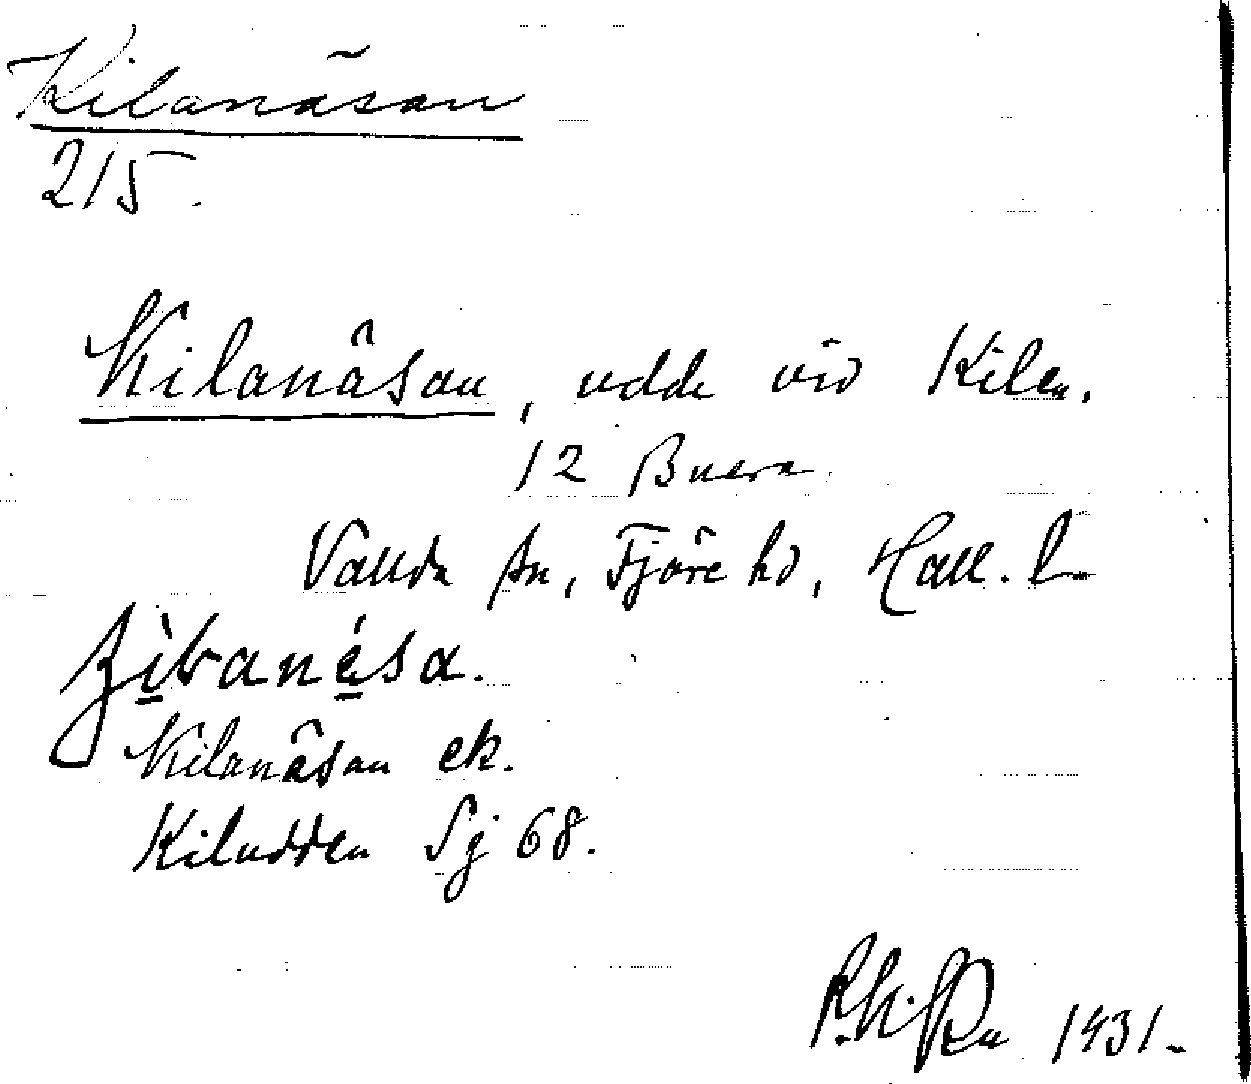 Kilanäsan
215.
Kilanäsan, udde vid Kilen.
12 Buera
Vallda sn, Fjäre hd, Hall. l.
Kilanäsan ek.
Kiludden Sj 68.
1931.